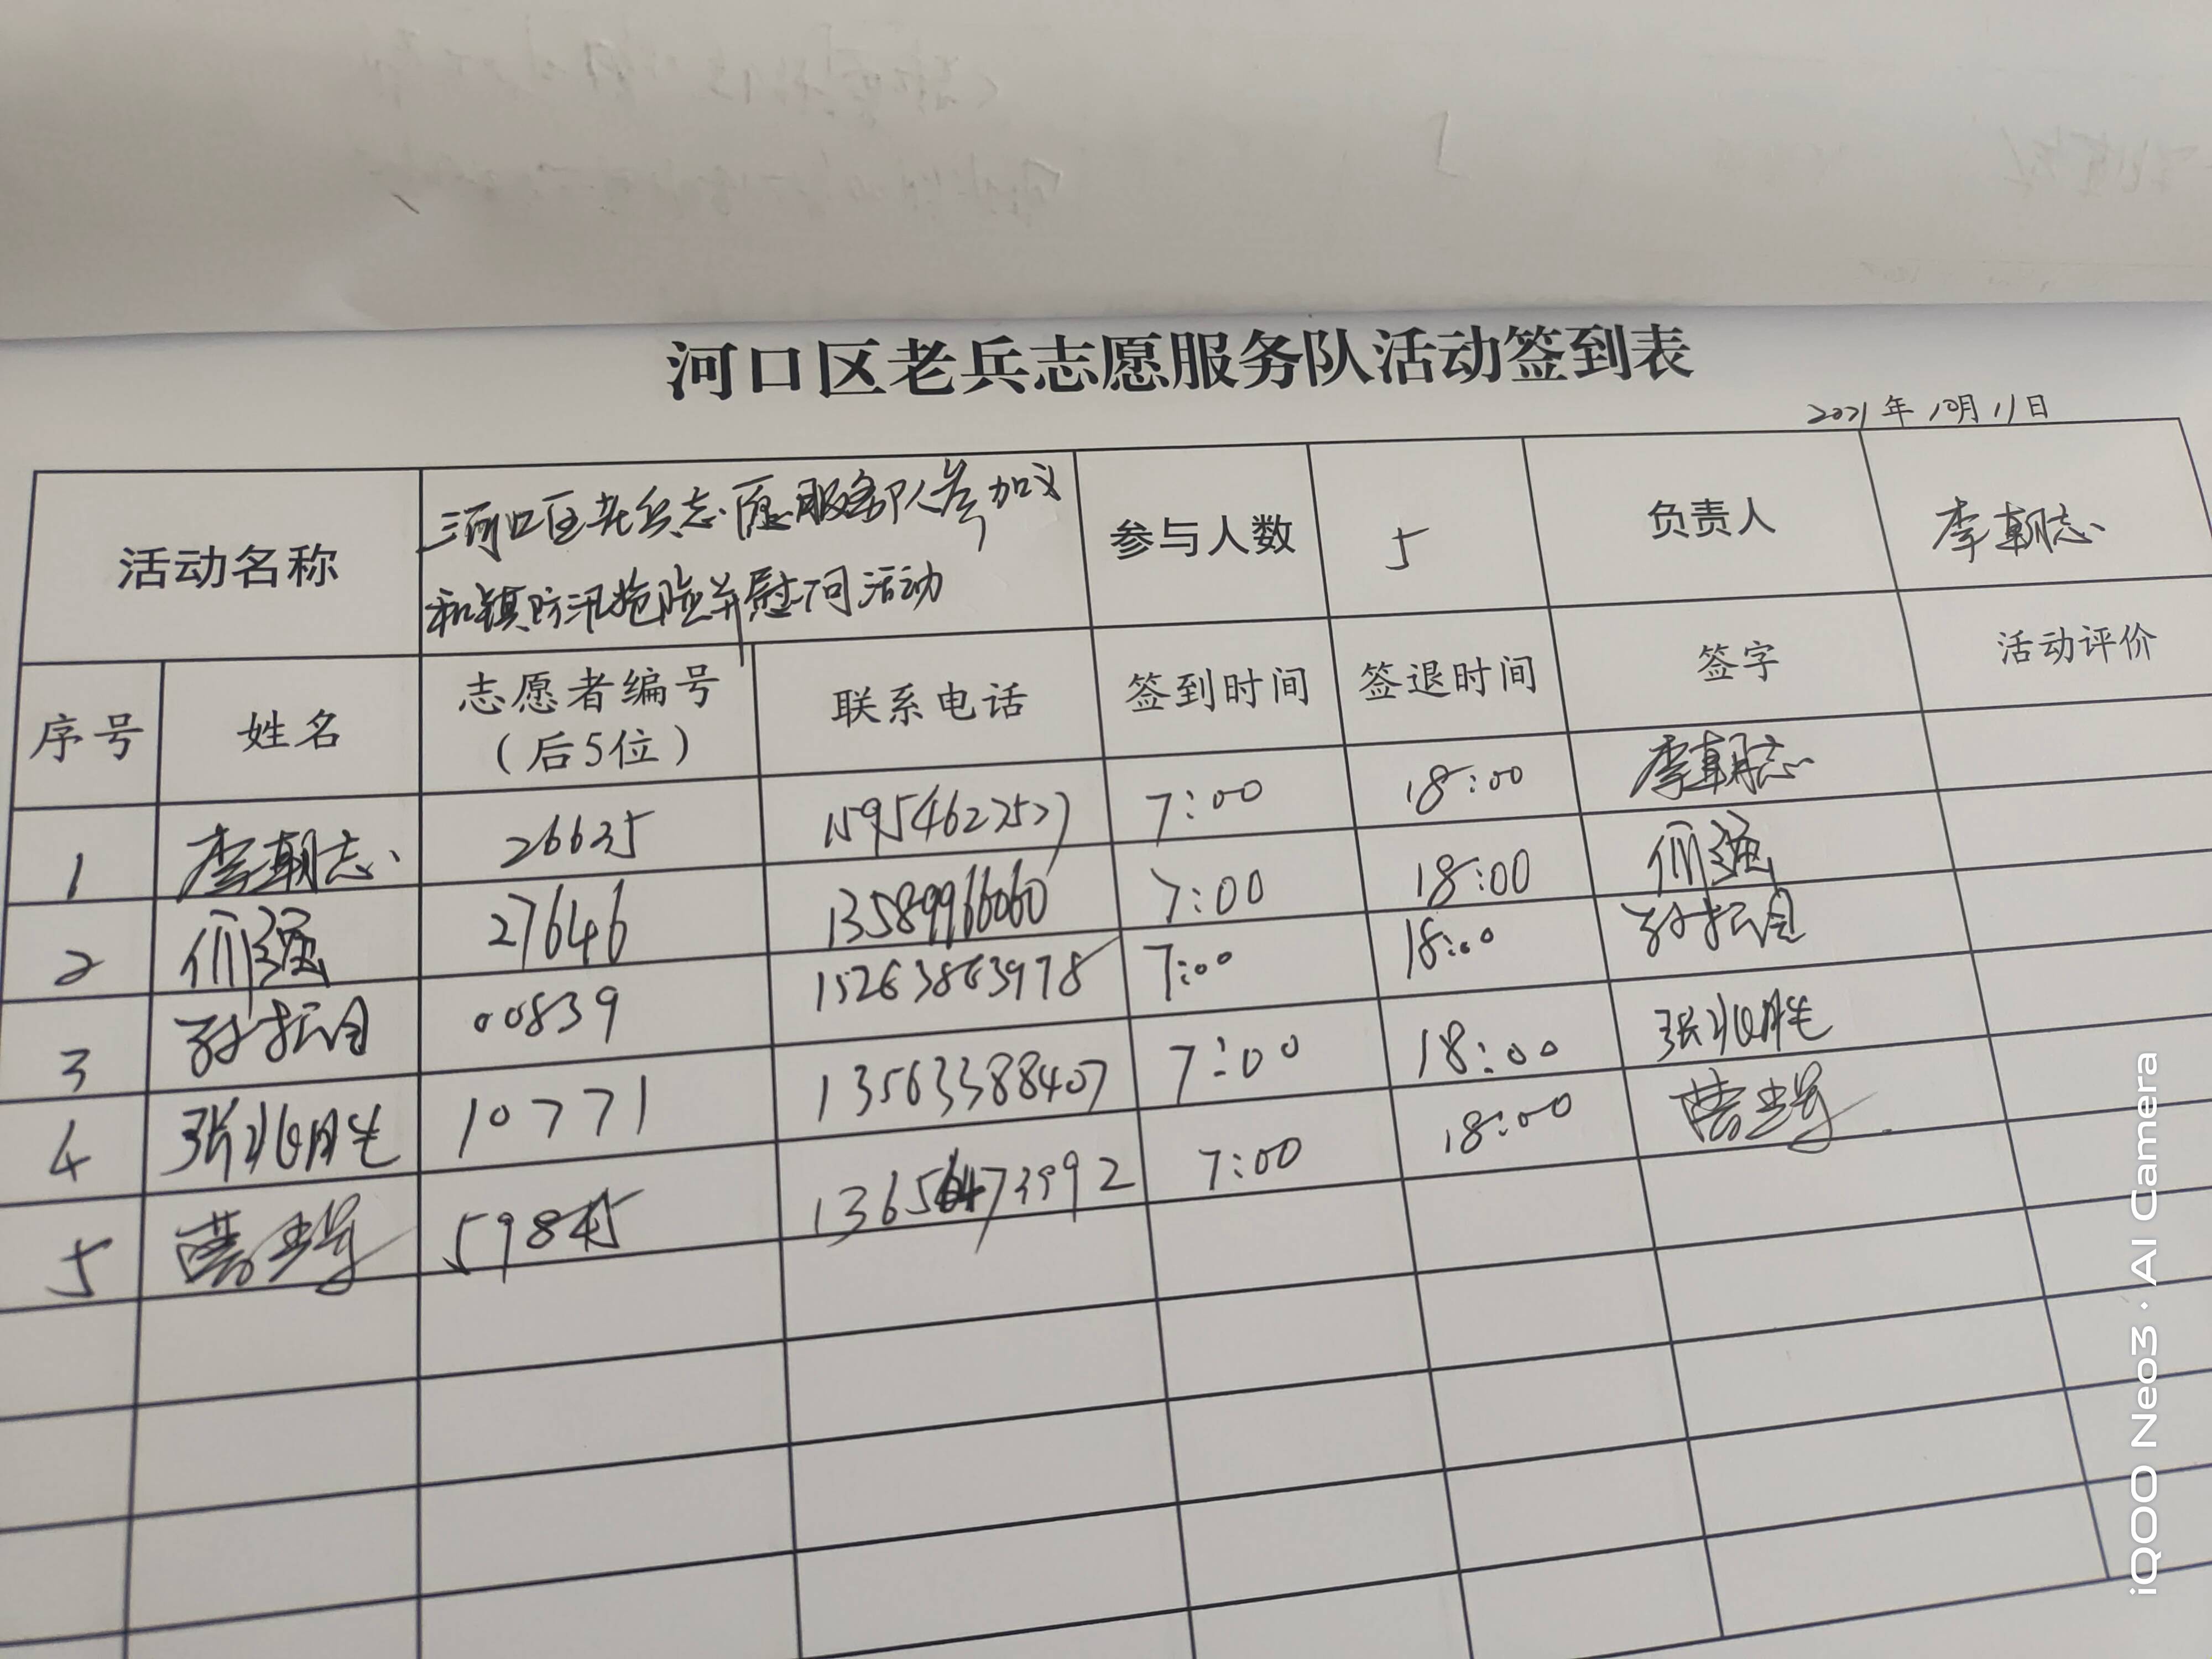 河口区老兵志愿服务队活动签到表
2021年10月11日
活动名称 河口区老兵志愿服务队参加义 参与人数 5 负责人 李朝志
和镇防汛抢险并慰问活动
序号 姓名 志愿者编号 联系电话 签到时间 签退时间 签字 活动评价
（后5位）
1 李朝志 26635 15954622527 7:00 18:00 李朝志
2 强 27646 13589966060 7:00 18:00 强
3 00839 15263863978 7:00 18:00
4 张兆胜 10771 13563388407 7:00 18:00 张兆胜
5 598 7:00 18:00
iQOO Neo3 · AI Camera